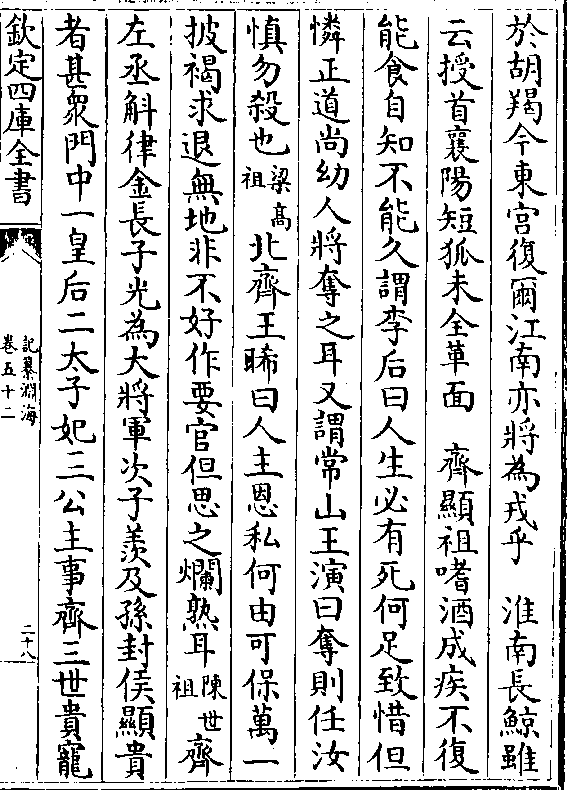 於胡羯今東宮復爾江南亦將為戎乎　淮南長鯨雖
云授首襄陽短狐未全革面　齊顯祖嗜酒成疾不復
能食自知不能久謂李后曰人生必有死何足致惜但
憐正道尚幼人將奪之耳又謂常山王演曰奪則任汝
慎勿殺也梁高祖北齊王晞曰人主恩私何由可保萬一
披褐求退無地非不好作要官但思之爛熟耳陳世祖齊
左丞斛律金長子光為大將軍次子羨及孫封侯顯貴
者甚衆門中一皇后二太子妃三公主事齊三世貴寵
欽定四庫全書
記纂淵海
卷五十二
二十八